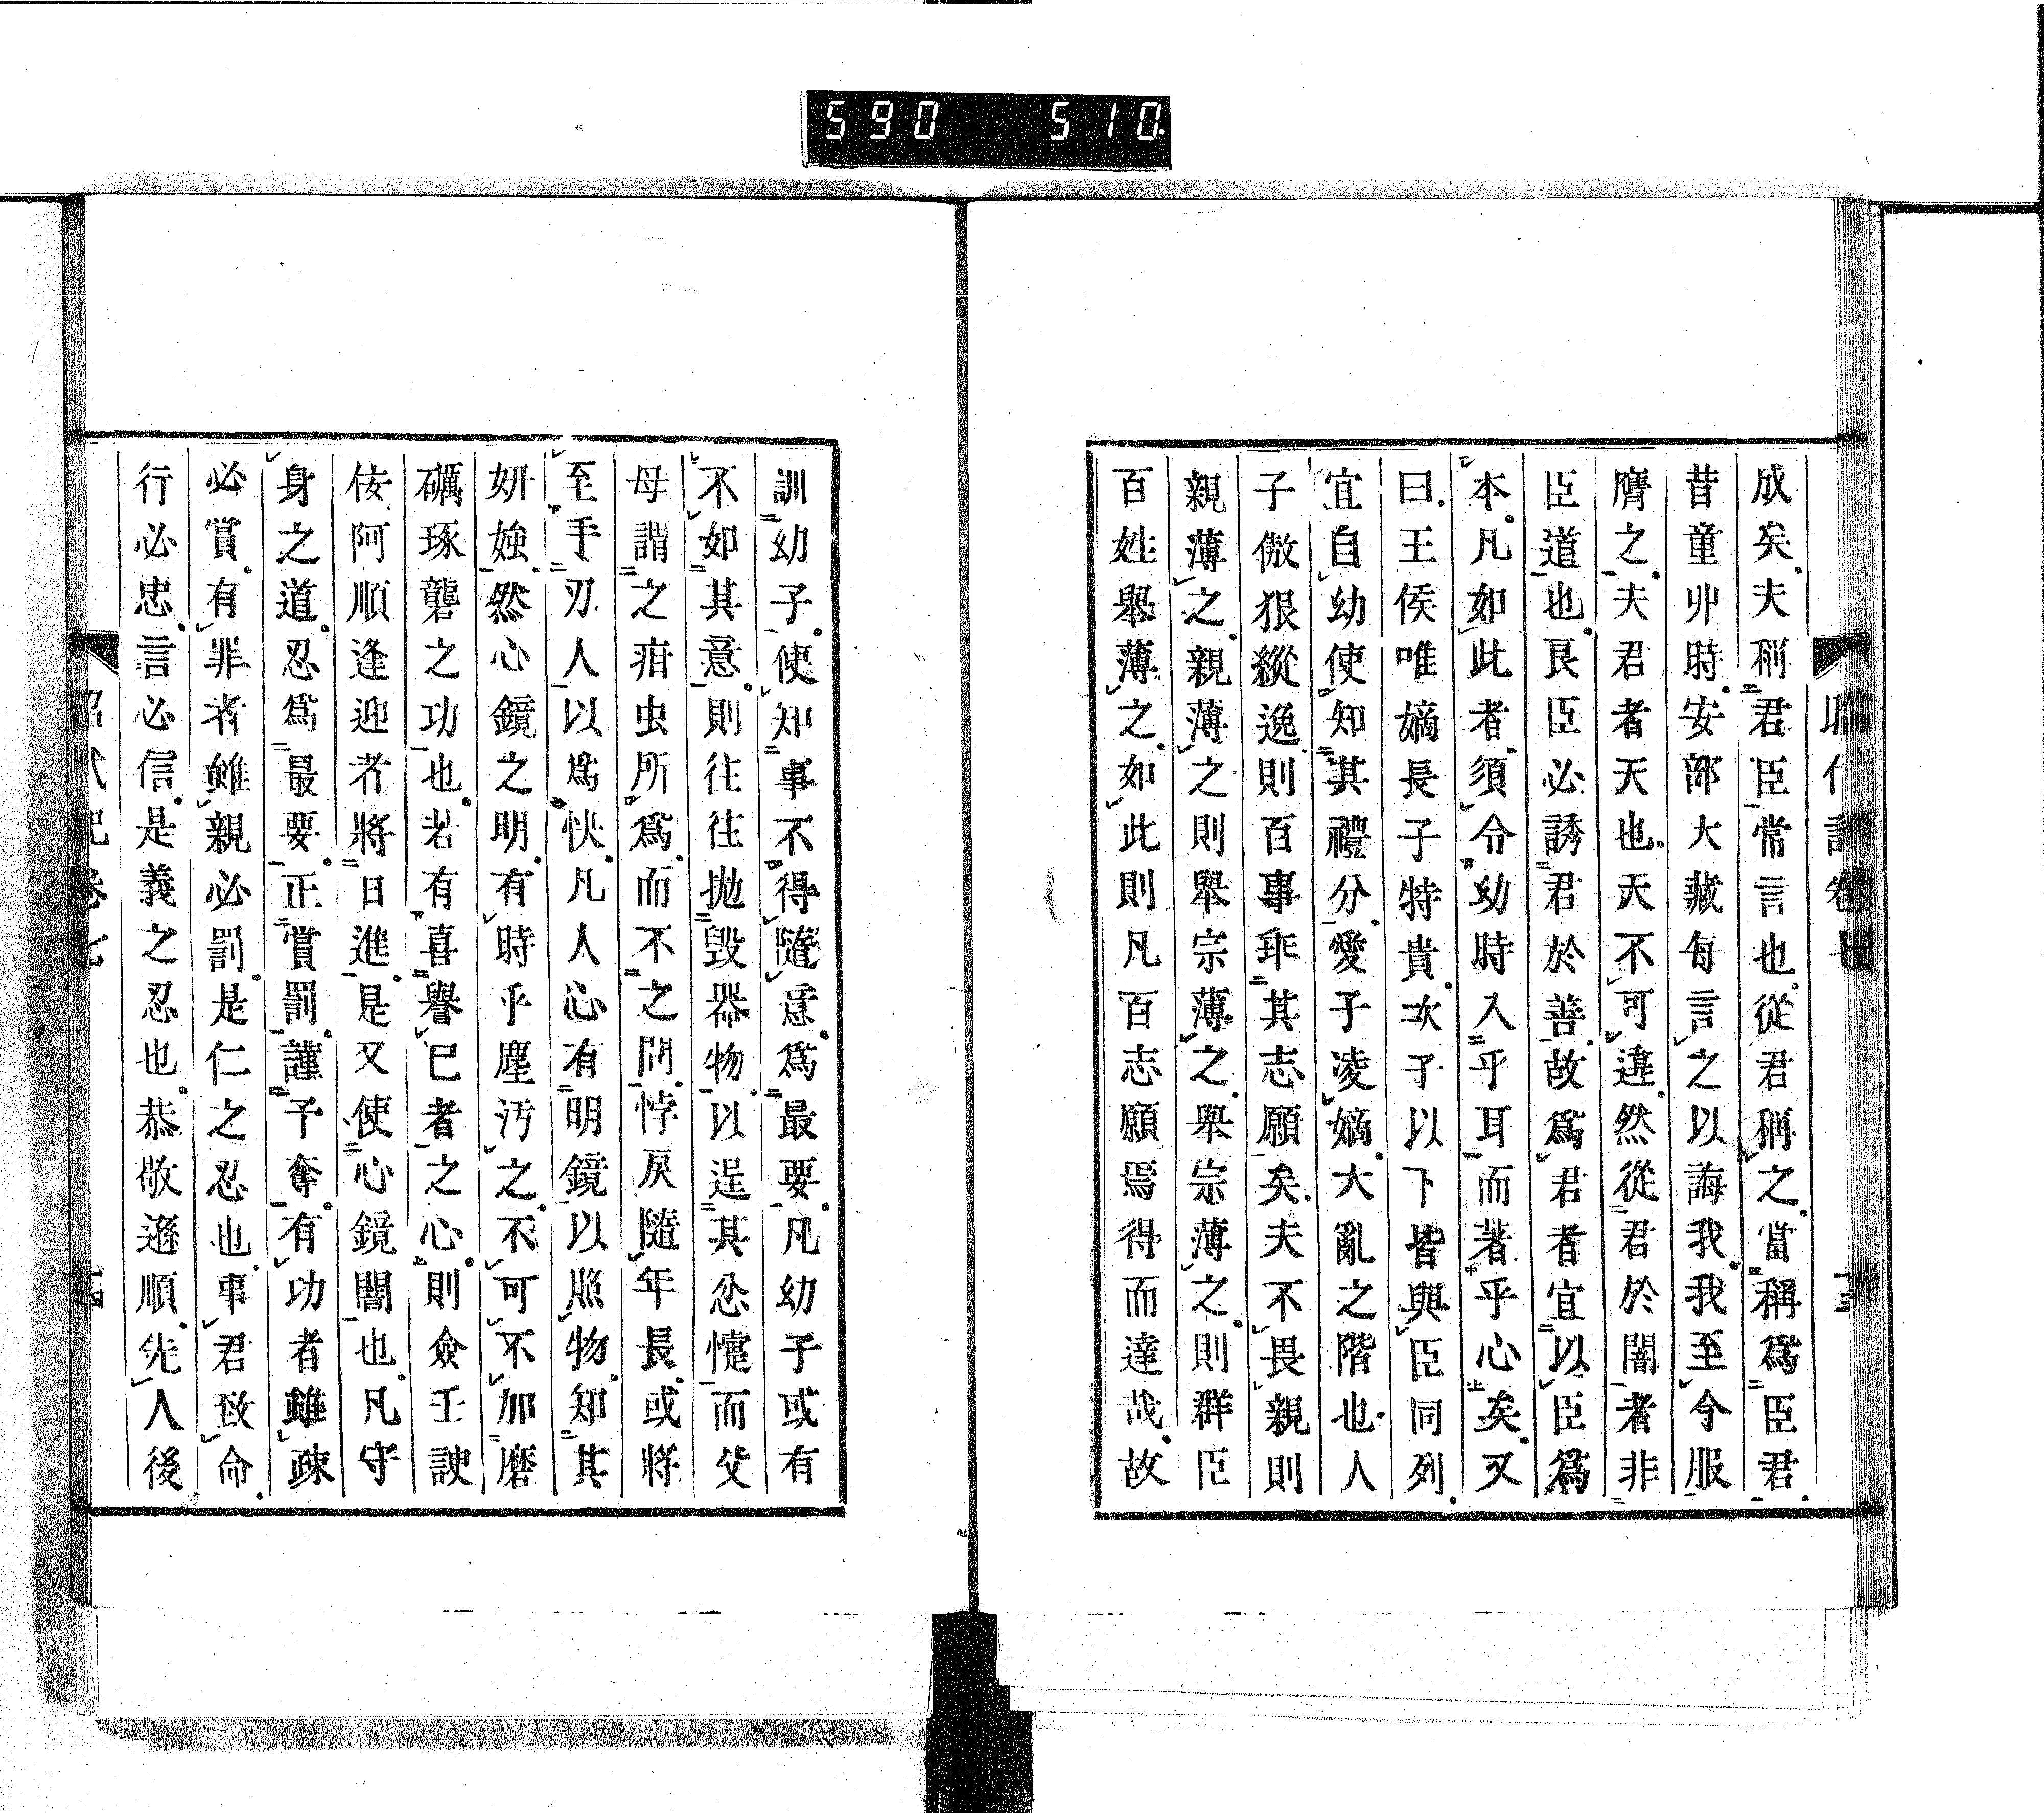 590 510
成矣。夫稱君臣常言也。從君稱之。當稱爲臣君。
昔童丱時。安部大藏每言之以誨我。我至今服
膺之。夫君者天也。天不可違。然從君於闇者非
臣道也。良臣必誘君於善。故爲君者宜以臣爲
本。凡如此者。須令幼時入乎耳而著乎心矣。又
曰。王侯唯嫡長子特貴。次子以下皆與臣同列。
宜自幼使知其禮分。愛子凌嫡。大亂之階也。人
子傲狠縱逸。則百事乖其志願矣。夫不畏親則
親薄之。親薄之則舉宗薄之。舉宗薄之。則群臣
百姓舉薄之。如此則凡百志願焉得而達哉。故
訓幼子。使知事不得隨意。爲最要。凡幼子或有
不如其意。則往往拋毀器物。以逞其忿懥。而父
母謂之疳虫所爲。而不之問。悖戾隨年長。或將
至手刃人以爲快。凡人心有明鏡以照物。知其
妍媸。然心鏡之明。有時乎塵汚之。不可不加磨
礪琢礱之功也。若有喜譽己者之心。則僉壬諛
佞阿順逢迎者將日進。是又使心鏡闇也。凡守
身之道。忍爲最要。正賞罰。謹予奪。有功者雖疎
必賞。有罪者雖親必罰。是仁之忍也。事君致命。
行必忠。言必信。是義之忍也。恭敬遜順。先人後